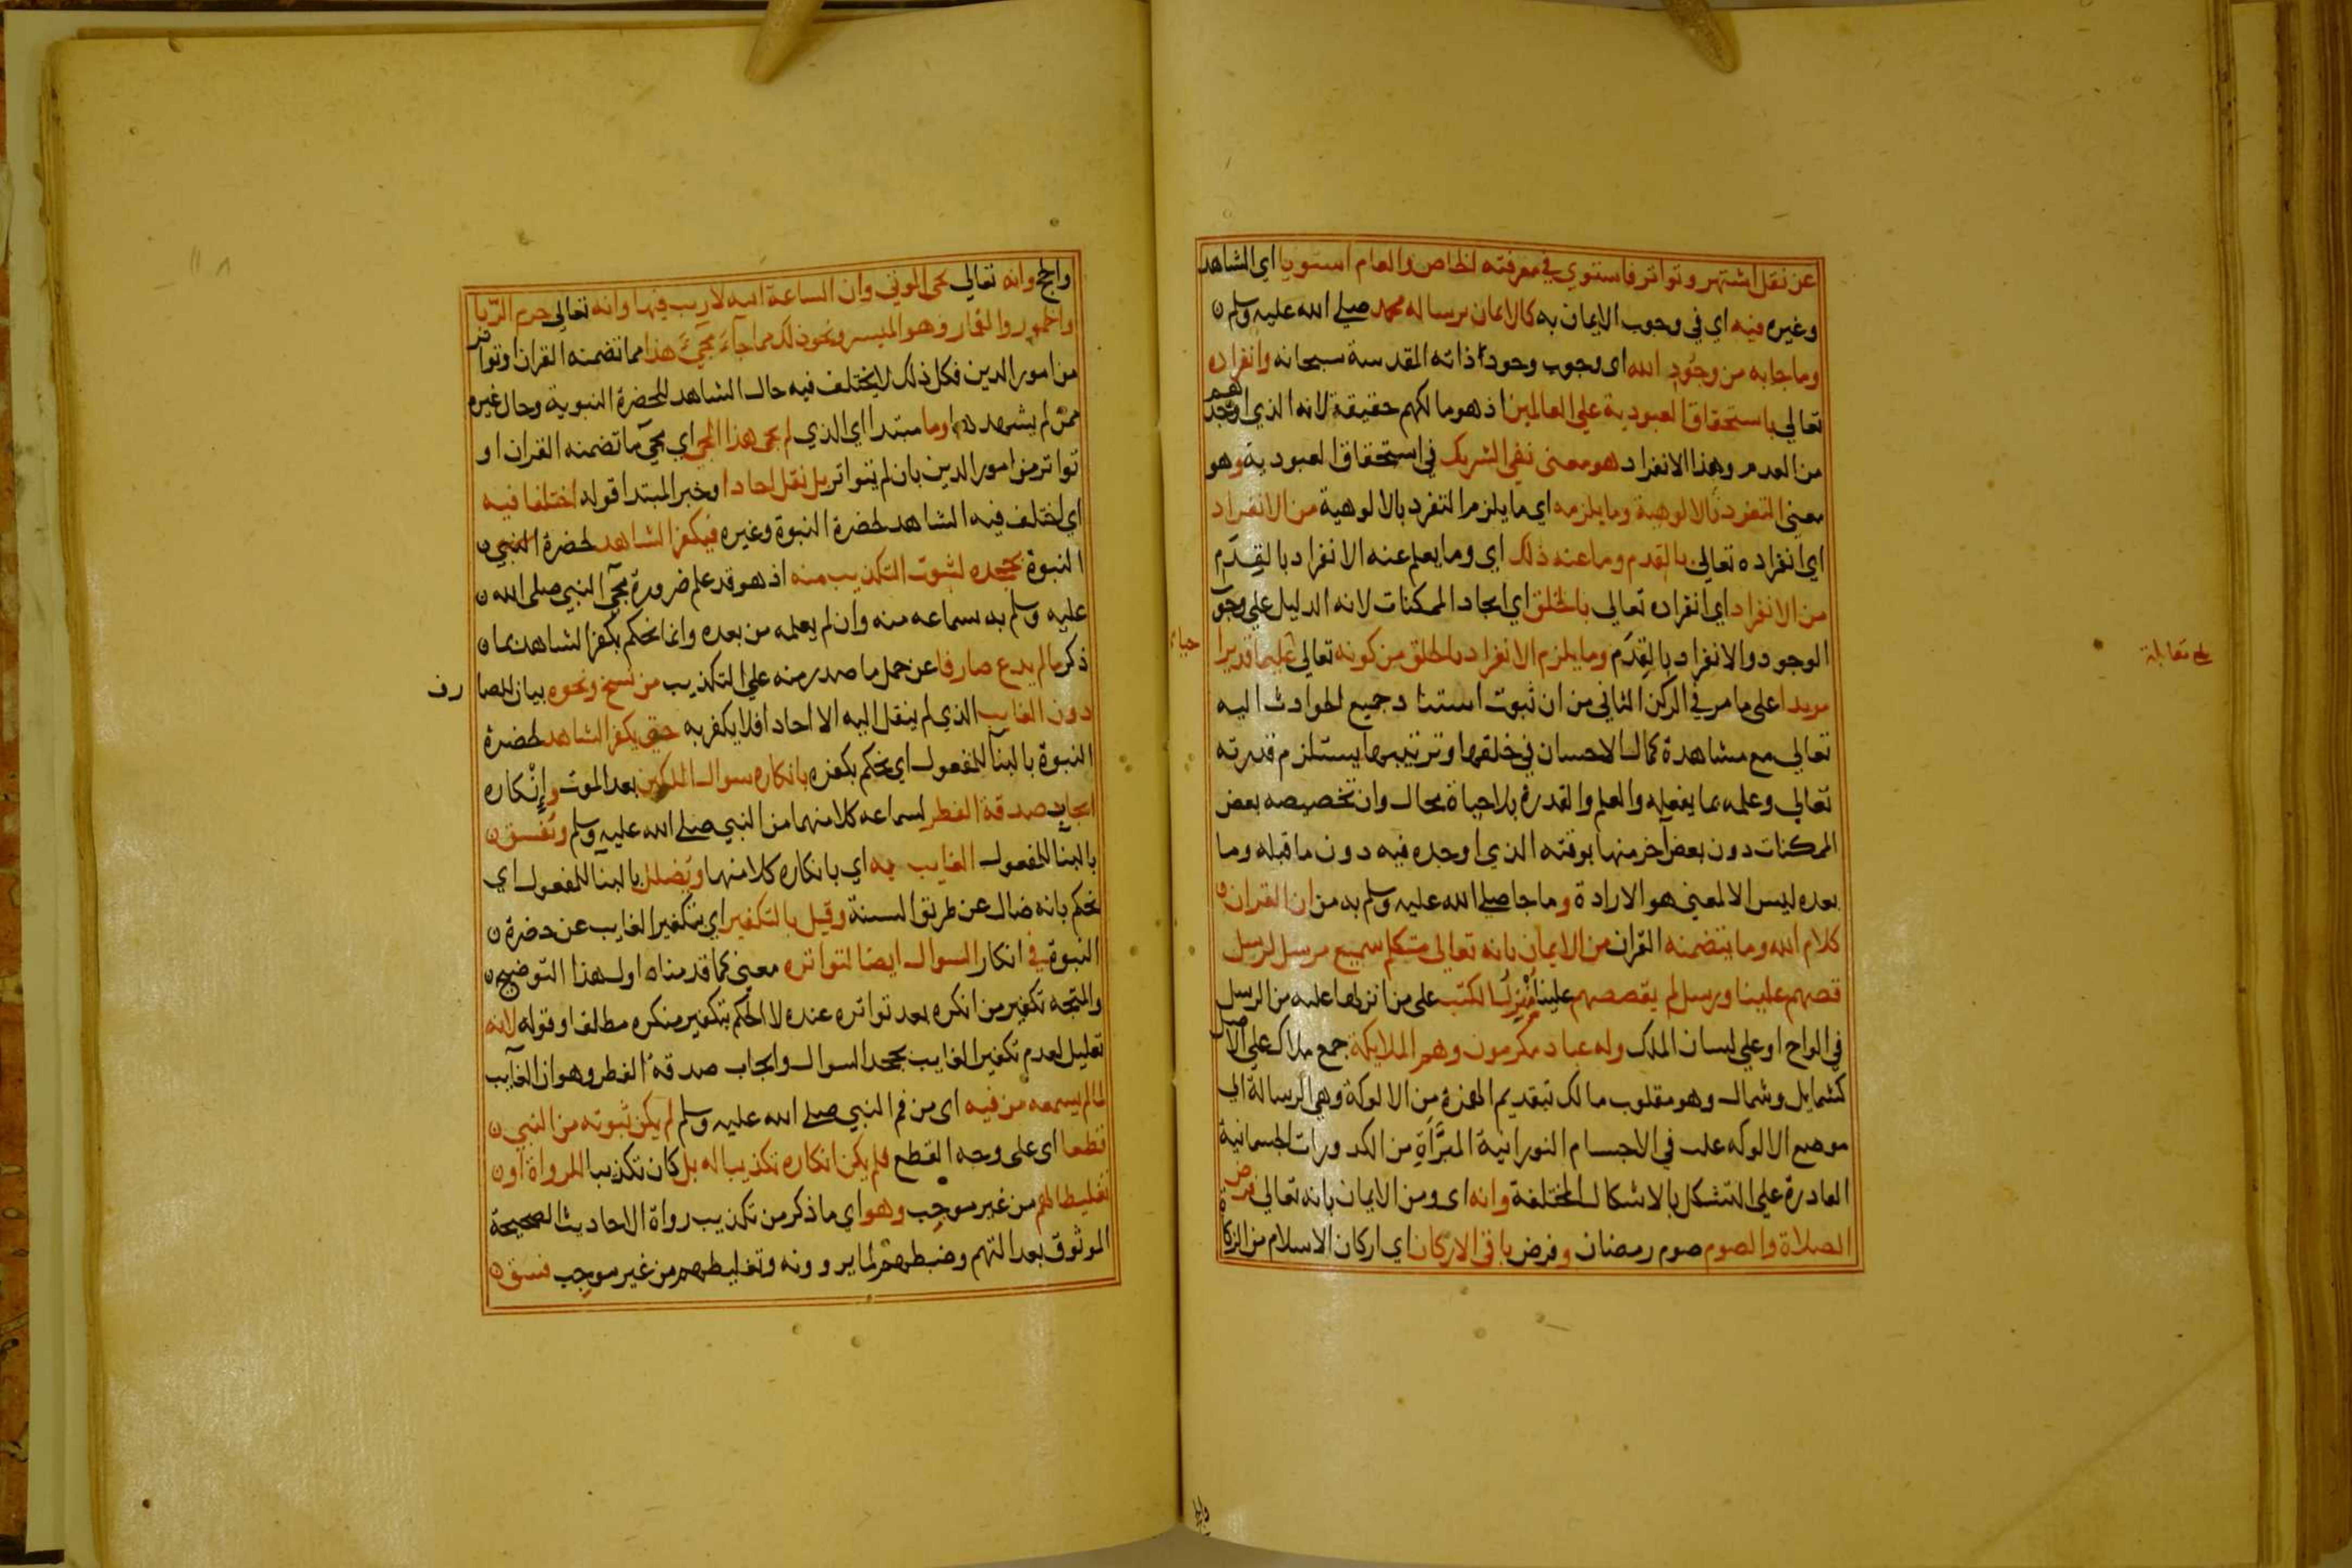 عن نقل اشتهر وتواتر فاستوي في معرفته الخاص والعام استويا اي الشاهد
وغيره فيه اي في وجوب الايمان به كالايمان برسالة محمد صلي الله عليه وسلم
وما جا به من وجود الله اى وجوب وجود ذاته المقدسة سبحانه وانفراده
تعالي باستحقاق العبودية علي العالمين اذ هو مالكهم حقيقة لانه الذي اوجدهم
من العدم وهذا الانفراد هو معنى نفي الشريك في استحقاق العبودية وهو
معنى التفرد بالالوهية وما يلزمه اي ما يلزم التفرد بالالوهية من الانفراد
اي انفراده تعالي بالقدم وما عنه ذلك اي وما يعلم عنه الانفراد بالقِدَم
من الانفراد اي انفراده تعالي بالخلق اي ايجاد الممكنات لانه الدليل علي وجوب
الوجود والانفراد بالقِدَم وما يلزم الانفراد بالخلق من كونه تعالي عليما قديرا
حيا
مريدا على ما مر في الركن الثاني من ان ثبوت استناد جميع الحوادث اليه
تعالي مع مشاهدة كمال الاحسان في خلقها وترتيبها يستلزم قدرته
تعالي وعلمه بما يفعله والعلم والقدرة بلا حياة محال وان تخصيصه بعض
الممكنات دون بعض آخر منها بوقته الذي اوجده فيه دون ما قبله وما
بعده ليس الا لمعنى هو الارادة وما جا صلي الله عليه وسلم به من ان القران
كلام الله وما يتضمنه القران من الايمان بانه تعالى متكلم سميع مرسل لرسل
قصهم علينا ورسل لم يقصصهم علينا مُنْزِل الكتب على من انزلها عليه من الرسل
في الواح او علي لسان الملك وله عباد مكرمون وهم الملايكة جمع ملاك علي الاصل
كشمايل وشمال وهو مقلوب مالك بتقديم الهمزة من الالوكة وهي الرسالة اي
موضع الالوكه غلب في الاجسام النورانية المبَرَّأة من الكدورات الجسمانية
القادرة علي التشكل بالاشكال المختلفة وانه اى ومن الايمان بانه تعالي فرض
الصلاة والصوم صوم رمضان وفرض باقي الاركان اي اركان الاسلام من الزكاة
بلغ مقابلة
والحج وانه تعالي يحيى الموتى وان الساعة اتيه لا ريب فيها وانه تعالى حرم الربا
والخمور والقمار وهو الميسر ونحو ذلك مما جاء مجيء هذا مما تضمنه القران او تواتر
من امور الدين فكل ذلك لا يختلف فيه حال الشاهد للحضرة النبوية وحال غيره
ممن لم يشهدها وما مبتدا اي الذي لم يجى هذا المجى اي مجئ ما تضمنه القران او
تواتر من امور الدين بان لم يتواتر بل نقل احادا وخبر المبتدا قوله اختلفا فيه
اي اختلف فيه الشاهد لحضرة النبوة وغيره فيكفر الشاهد لحضرة النبي
النبوة بجحده لثبوت التكذيب منه اذ هو قد علم ضرورة مجئ النبي صلى الله
عليه وسلم به سماعه منه وان لم يعلمه من بعده وانما نحكم بكفر الشاهد بما
ذكر ما لم يدع صارفا عن حمل ما صدر منه علي التكذيب من نسخ ونحوه بيان للصارف
دون الغايب الذي لم ينقل اليه الا احادا فلا يكفر به حتى يكفر الشاهد لحضرة
النبوة بالبنا للمفعول اي يحكم بكفره بانكاره سوال الملكين بعد الموت وإنْكاره
ايجاب صدقة الفطر لسماعه كلا منهما من النبي صلي الله عليه وسلم ويُفسق
بالبنا للمفعول الغايب به اي بانكاره كلا منها ويُضلل بالبنا للمفعول اي
يحكم بانه ضال عن طريق السنة وقيل بالتكفير اي بتكفير الغايب عن حضرة
النبوة في انكار السوال ايضا لتواتره معنى كما قدمناه اول هذا التوضيح
والمتجه تكفير من انكره بعد تواتره عنده لا الحكم بتكفير منكره مطلقا وقوله لانه
تعليل لعدم تكفير الغايب بجحد السوال وايجاب صدقة الفطر وهو ان الغايب
لما لم يسمعه من فيه اى من فم النبي صلي الله عليه وسلم لم يكن ثبوته من النبي
قطعا اى على وجه القطع فلم يكن انكاره تكذيبا له بل كان تكذيبا للرواة او
تغليطا لهم من غير موجِب وهو اي ما ذكر من تكذيب رواة الاحاديث الصحيحة
الموثوق بعدالتهم وضبطهم لما يروونه وتغليطهم من غير موجِب فسق